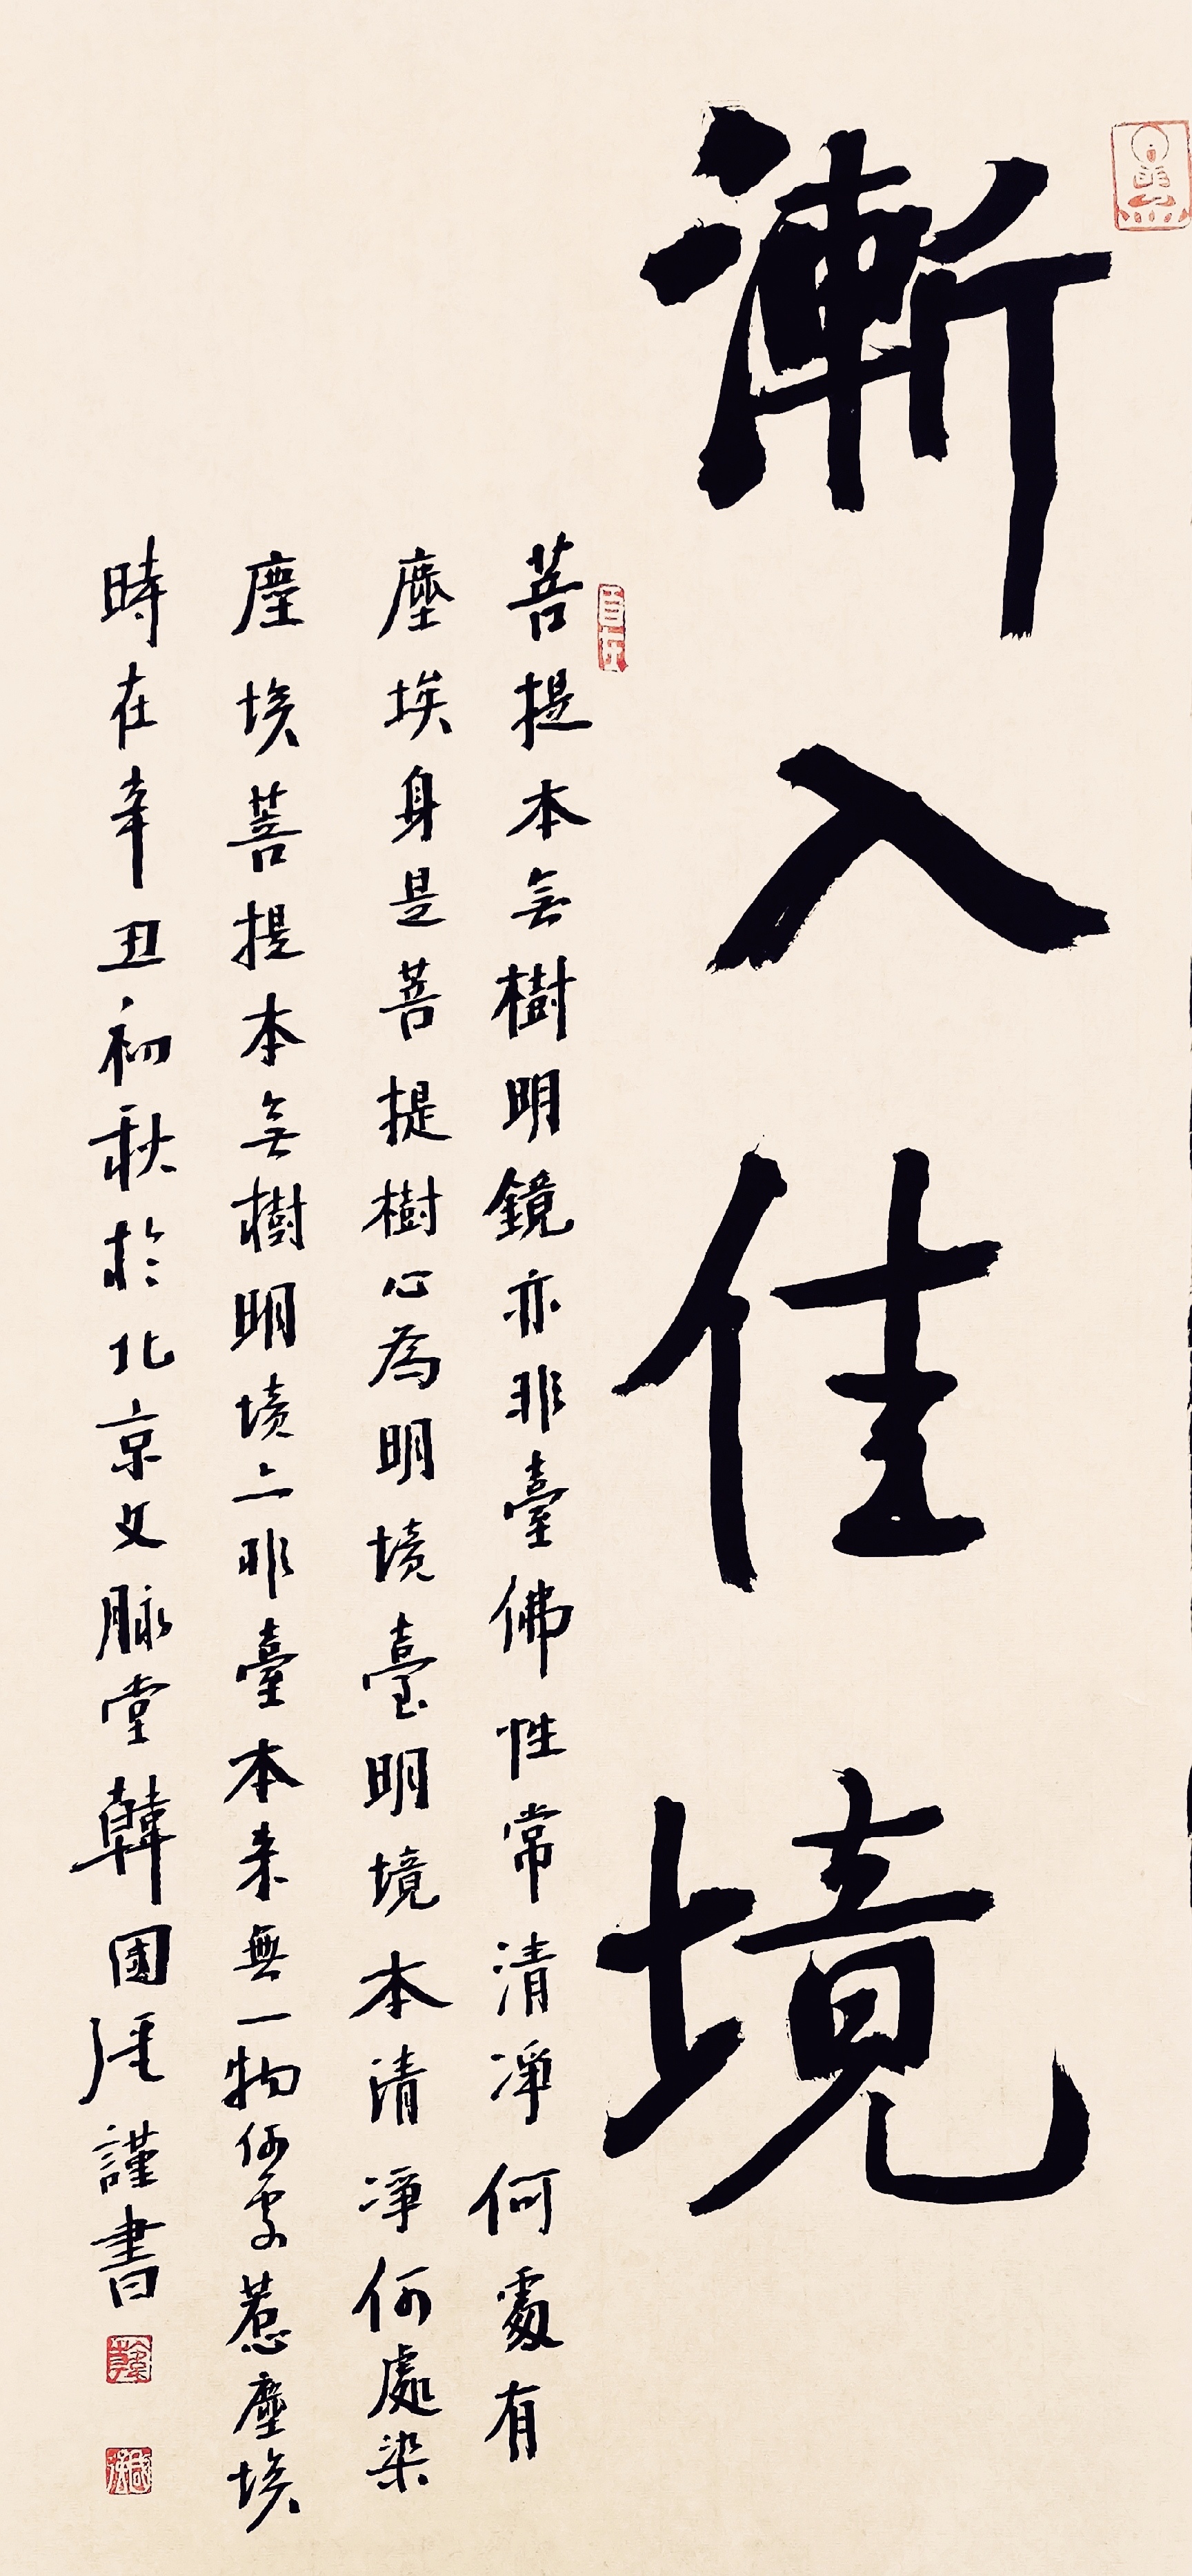 漸入佳境
菩提本无樹明鏡亦非臺佛性常清淨何處有
塵埃身是菩提樹心為明境臺明境本清淨何處染
塵埃菩提本无樹明境亠非臺本来無一物何處惹塵埃
時在辛丑初秋於北京文脉堂韓國謹書
自在